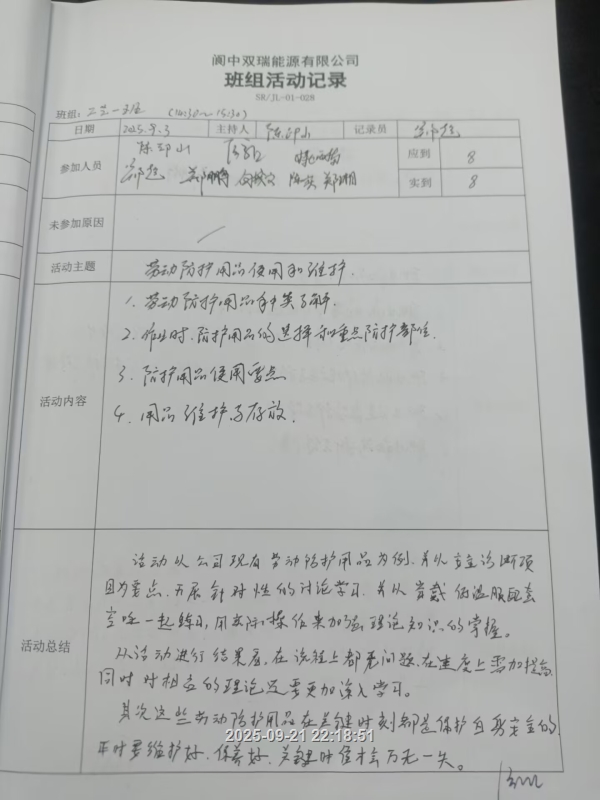 阆中双瑞能源有限公司
班组活动记录
SR/JL-01-028
班组: 工艺一班 (14:30~15:30)
日期 2025.9.3 主持人 记录员
参加人员 应到 8
郑翔 实到 8
未参加原因
活动主题 劳动防护用品使用和维护.
1. 劳动防护用品种类了解.
2. 作业时.防护用品的选择和重点防护部位.
活动内容 3. 防护用品使用要点
4. 用品维护与存放.
活动以公司现有劳动防护用品为例.并以 诊断项
目为要点.开展针对性的讨论学习.并以 戴 服
一起练习.用实际操作来加强理论知识的掌握。
活动总结 从活动进行结果看.在流程上都无问题.在速度上需加提高
同时对相应的理论还要更加深入学习。
其次这些劳动防护用品在关键时刻都是保护自身安全的.
平时要维护好.保养好.关键时候才会万无一失。
2025-09-21 22:18:51